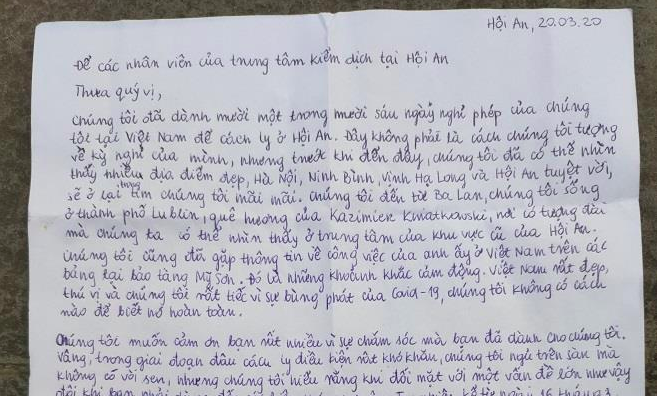 Hội An, 20.03.20
Để các nhân viên của trung tâm kiểm dịch tại Hội An
Thưa quý vị,
Chúng tôi đã dành mười một trong mười sáu ngày nghỉ phép của chúng
tôi tại Việt Nam để cách ly ở Hội An. Đây không phải là cách chúng tôi tượng
về kỳ nghỉ của mình, nhưng trước khi đến đây, chúng tôi đã có thể nhìn
thấy nhiều địa điểm đẹp, Hà Nội, Ninh Bình, Vịnh Hạ Long và Hội An tuyệt vời,
sẽ ở lại trong tim chúng tôi mãi mãi. Chúng tôi đến từ Ba Lan, chúng tôi sống
ở thành phố Lublin, quê hương của Kazimierz Kwiatkowski, nơi có tượng đài
mà chúng ta có thể nhìn thấy ở trung tâm của khu vực cũ của Hội An.
Chúng tôi cũng đã gặp thông tin về công việc của anh ấy ở Việt Nam trên các
bảng tại bảo tàng Mỹ Sơn. Đó là những khoảnh khắc cảm động. Việt Nam rất đẹp,
thú vị và chúng tôi rất tiếc vì sự bùng phát của Covid-19, chúng tôi không có cách
nào để biết nó hoàn toàn.
Chúng tôi muốn cảm ơn bạn rất nhiều vì sự chăm sóc mà bạn đã dành cho chúng tôi.
Vâng, trong giai đoạn đầu cách ly điều kiện rất khó khăn, chúng tôi ngủ trên sàn mà
không có vòi sen, nhưng chúng tôi hiểu rằng khi đối mặt với một vấn đề lớn như vậy
đôi khi bạn phải